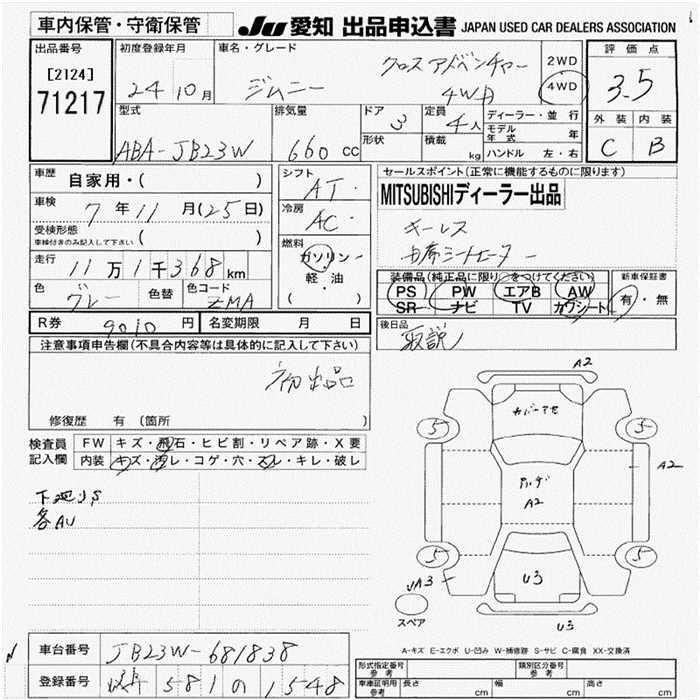 車内保管・守衛保管
JU 愛知 出品申込書 JAPAN USED CAR DEALERS ASSOCIATION
出品番号 [2124] 71217
初度登録年月 24年10月
車名・グレード ジムニー クロスアドベンチャー 4WD
2WD 4WD
評価点 3.5
外装 C 内装 B
型式 ABA-JB23W
排気量 660 cc
ドア 3 形状
定員 4人 積載 kg
ディーラー・並行
モデル年式 年
ハンドル 左・右
車歴 自家用・( )
車検 7年11月(25日)
受検形態 ( )
車検付きのみ記入して下さい
走行 11万1千368km
色 グレー 色替 色コード ZMA
シフト AT
冷房 AC
燃料 ガソリン 軽油 ( )
セールスポイント(正常に機能するものに限ります)
MITSUBISHIディーラー出品
キーレス
シートヒーター
装備品(純正品に限り○をつけてください)
PS PW エアB AW
SR ナビ TV カワシート
新車保証書 有・無
R券 9010円 名変期限 月 日
後日品 取説
注意事項申告欄(不具合内容等は具体的に記入して下さい)
初出品
修復歴 有 (箇所
検査員記入欄
FW キズ・飛石・ヒビ割・リペア跡・X要
内装 キズ・汚レ・コゲ・穴・スレ・キレ・破レ
下廻りS
各AU
A2
5 5
A2
A2
5 5
UA3
U3
U3
スペア
A-キズ E-エクボ U-凹み W-補修跡 S-サビ C-腐食 XX-交換済
車台番号 JB23W-681838
登録番号 岐阜 581 の 1548
形式指定番号 参考 類別区分番号 参考
車両証明用 参考 長さ cm 幅 cm 高さ cm